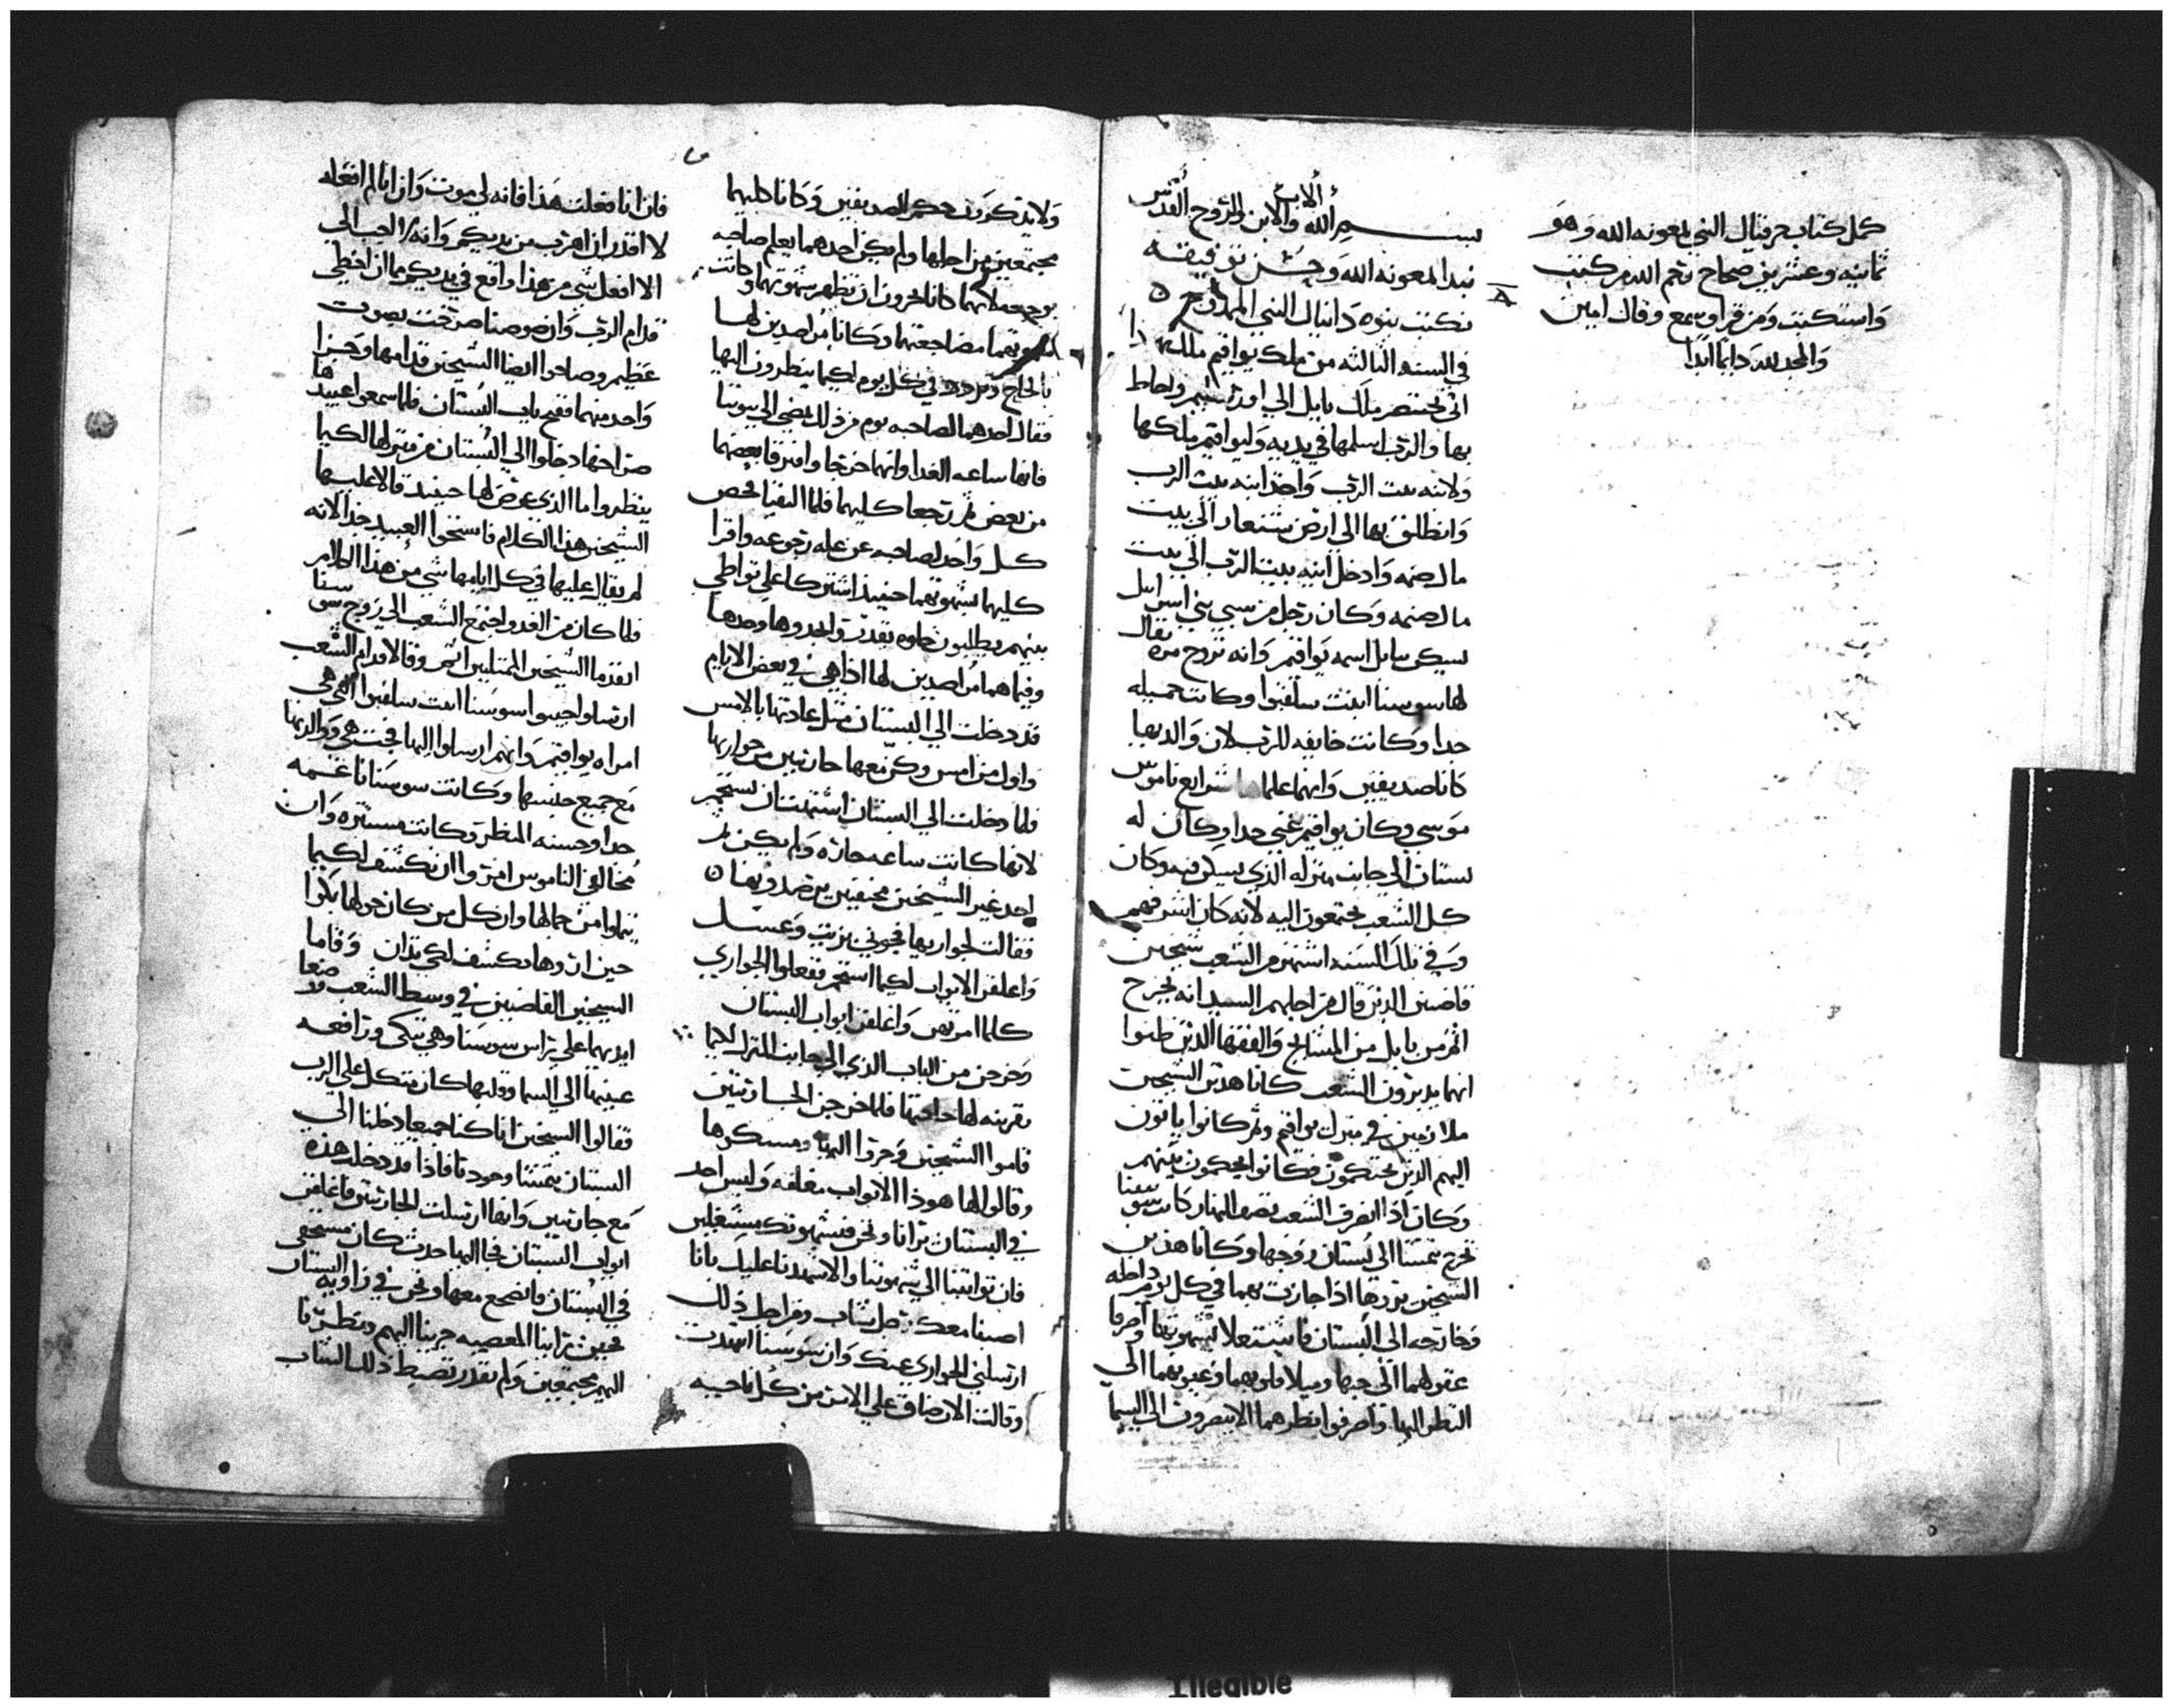 كمل كتاب حزقيال النبي بمعونه الله وهو
ثمانيه وعشرين صحاح رحم الله من كتب
واستكتب ومن قرا وسمع وقال امين
والمجد لله دايما ابدا
بسم الله الاب والابن والروح القدس
نبدا بمعونه الله وحسن توفيقه
نكتب نبوه دانيال النبي
في السنه الثالثه من ملك يواقيم ملك يهودا
اتى بختنصر ملك بابل الي اورشليم واحاط
بها والرب اسلمها في يديه وليواقيم ملكها
ولانيه بيت الرب واخذ انيه بيت الرب
وانطلق بها الي ارض شنعار الي بيت
مال صنمه وادخل انيه بيت الرب الي بيت
مال صنمه وكان رجل من سبي بني اسرايل
يسكن بابل اسمه يواقيم وانه تزوج مره يقال
لها سوسنا ابنت سلقيوا وكانت جميله
جدا وكانت خايفه للرب لان والديها
كانا صديقين وانهما علماها شرايع ناموس
موسي وكان يواقيم غني جدا وكان له
بستان الي جانب منزله الذي يسكن فيه وكان
كل الشعب يجتمعون اليه لانه كان اشرفهم
وفي تلك السنه اشتهر من الشعب شيخين
قاضين الذين قال من اجلهم السيد انه يخرج
اثم من بابل من المشايخ والفقها الذين ظنوا
انهما يدبرون الشعب كانا هذين الشيخين
ملازمين في منزل يواقيم وثم كانوا ياتون
اليهم الذين يحتكمون فكانوا يحكمون بينهم
وكان اذا انصرف الشعب نصف النهار كانت سوسنا
تخرج تتمشا الي بستان زوجها وكانا هذين
الشيخين اذا جازت بهما في كل يوم داخله
وخارجه الي البستان فاشتعلا بشهوتها واصرفا
عقولهما الي حبها وميلا قلوبهما وعيونهما الي
النظر اليها واصرفوا نظرهما لا يبصرون الي السما
ولا يذكرون حكم الصديقين وكانا كليهما
مجتمعين من اجلها ولم يكن احدهما يعلم صاحبه
بوجعه لانهما كانا يخزون ان تظهر شهوتهما وكانت
شهوتهما مضاجعتها وكانا راصدين لها
بالحاح في كل يوم لكيما ينظرون اليها
فقال احدهما لصاحبه يوم من ذلك نمضي الي بيوتنا
فانها ساعه الغدا وانهما خرجا وافترقا بعضهما
من بعض ثم رجعا كليهما فلما التقيا فحص
كل واحد لصاحبه عن عله رجوعه واقرا
كليهما بشهوتهما حينيذ اشتركا علي تواطي
بينهم يطلبون خلوه
وفيما هما راصدين لها اذا هي في بعض الايام
قد دخلت الي البستان مثل عادتها بالامس
واول من امس وكن معها جاريتين من جواريها
فلما دخلت الي البستان اشتهت ان تستحم
لانها كانت ساعه حاره ولم يكن ثم
احد غير الشيخين مختفين يرصدونها
فقالت لجواريها جوني بزيت وغسل
واغلقن الابواب لكيما استحم ففعلوا الجواري
كلما امرتهن واغلقن ابواب البستان
وخرجن من الباب الذي الي جانب المنزل لكيما
يقربنه لها حاجتها فلما خرجن الجاريتين
قاموا الشيخين وجروا اليها ومسكوها
وقالوا لها هوذا الابواب مغلقه وليس احد
في البستان يرانا ونحن في شهوتك مشتغلين
فان تواتينا الي شهوتنا والا شهدنا عليك باننا
اصبنا معك رجل شاب ومن اجل ذلك
ارسلتي الجواري عنك وان سوسنا تنهدت
وقالت الان ضاق علي الامر من كل ناحيه
فان انا فعلت هذا فانه لي موت وان انا لم افعله
لا اقدر ان اهرب من يديكم وانه لاحب الي
الا افعل شي من هذا واقع في يديكم من ان اخطي
قدام الرب وان سوسنا صرخت بصوت
عظيم وصاحوا ايضا الشيخين قدامها وجرا
واحد منهما ففتح باب البستان فلما سمعوا عبيدها
صراخها دخلوا الي البستان من منزلها لكيما
ينظروا ما الذي عرض لها حينيذ قالا عليها
الشيخين هذا الكلام فاستحوا العبيد جدا لانه
لم يقال عليها في كل ايامها شي من هذا الكلام
فلما كان من الغد واجتمع الشعب الي زوج سوسنا
تقدما الشيخين الممتليين اثم وقالا قدام الشعب
ارسلوا جيبوا سوسنا ابنت سلقيوا التي هي
امراه يواقيم وانهم ارسلوا اليها فجت هي ووالديها
مع جميع جنسها وكانت سوسنا ناعمه
جدا وحسنه المنظر وكانت مستتره وان
مخالفي الناموس امروا ان تكشف لكيما
يتملوا من جمالها وان كل من كان حولها بكوا
حين راوها تكشف لكي تدان وقاما
الشيخين القاضيين في وسط الشعب وضعا
ايديهما علي راس سوسنا وهي تبكي ورافعه
عينيها الي السما وقلبها كان متكل علي الرب
فقالوا الشيخين انا كنا جميعا دخلنا الي
البستان نتمشا وحدنا فاذا قد دخلت هذه
مع جاريتين وانها ارسلت الجاريتين واغلقت
ابواب البستان فجا اليها حدث كان مستخفي
في البستان فانضجع معها ونحن في زاويه البستان
فحين راينا المعصيه جرينا اليهم ونظرنا
اليهم مجتمعين ولم نقدر نضبط ذلك الشاب
Illegible